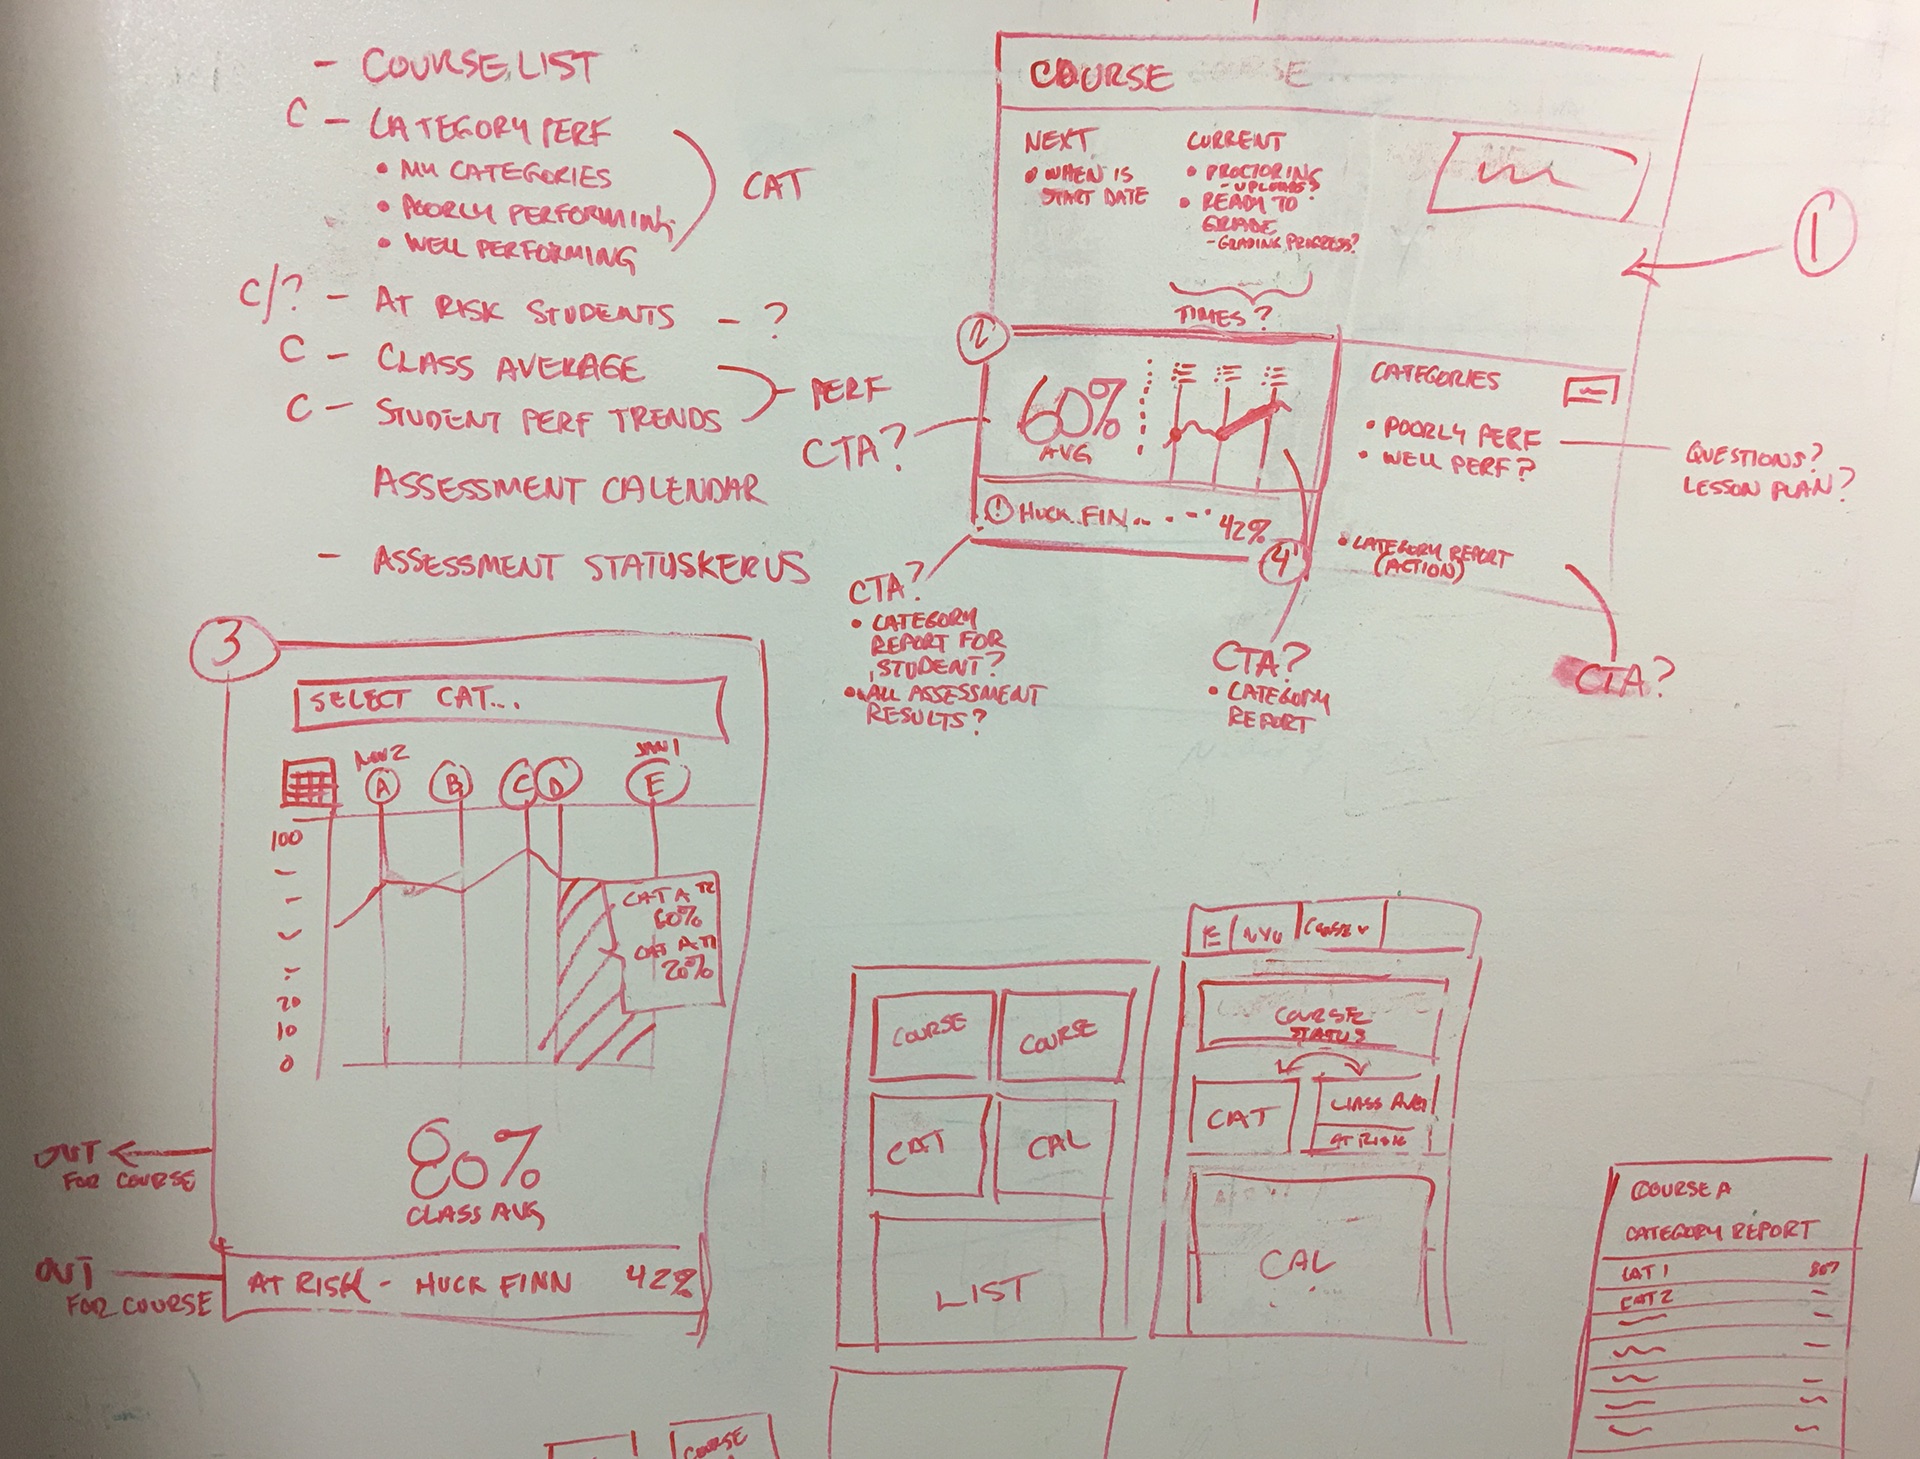 - COURSE LIST
C - CATEGORY PERF
• MY CATEGORIES
• POORLY PERFORMING
• WELL PERFORMING
CAT
C/? - AT RISK STUDENTS - ?
C - CLASS AVERAGE
C - STUDENT PERF TRENDS
PERF
ASSESSMENT CALENDAR
- ASSESSMENT STATUSKERUS
COURSE
NEXT
• WHEN IS
START DATE
CURRENT
• PROCTORING
- UPLOADS?
• READY TO
GRADE
- GRADING PROGRESS?
TIMES?
1
2
60%
AVG
! HUCK FIN... 42%
4
CTA?
CATEGORIES
• POORLY PERF
• WELL PERF?
QUESTIONS?
LESSON PLAN?
• CATEGORY REPORT
(ACTION)
CTA?
CTA?
• CATEGORY
REPORT FOR
STUDENT?
• ALL ASSESSMENT
RESULTS?
CTA?
• CATEGORY
REPORT
3
SELECT CAT...
NOV 2
JAN 1
A B C D E
100
20
10
0
CAT A T2
60%
CAT A T1
20%
80%
CLASS AVG
OUT
FOR COURSE
OUT
FOR COURSE
AT RISK - HUCK FINN 42%
COURSE COURSE
CAT CAL
LIST
NYU COURSE
COURSE
STATUS
CAT
CLASS AVG
AT RISK
CAL
COURSE A
CATEGORY REPORT
CAT 1
CAT 2
COURSE